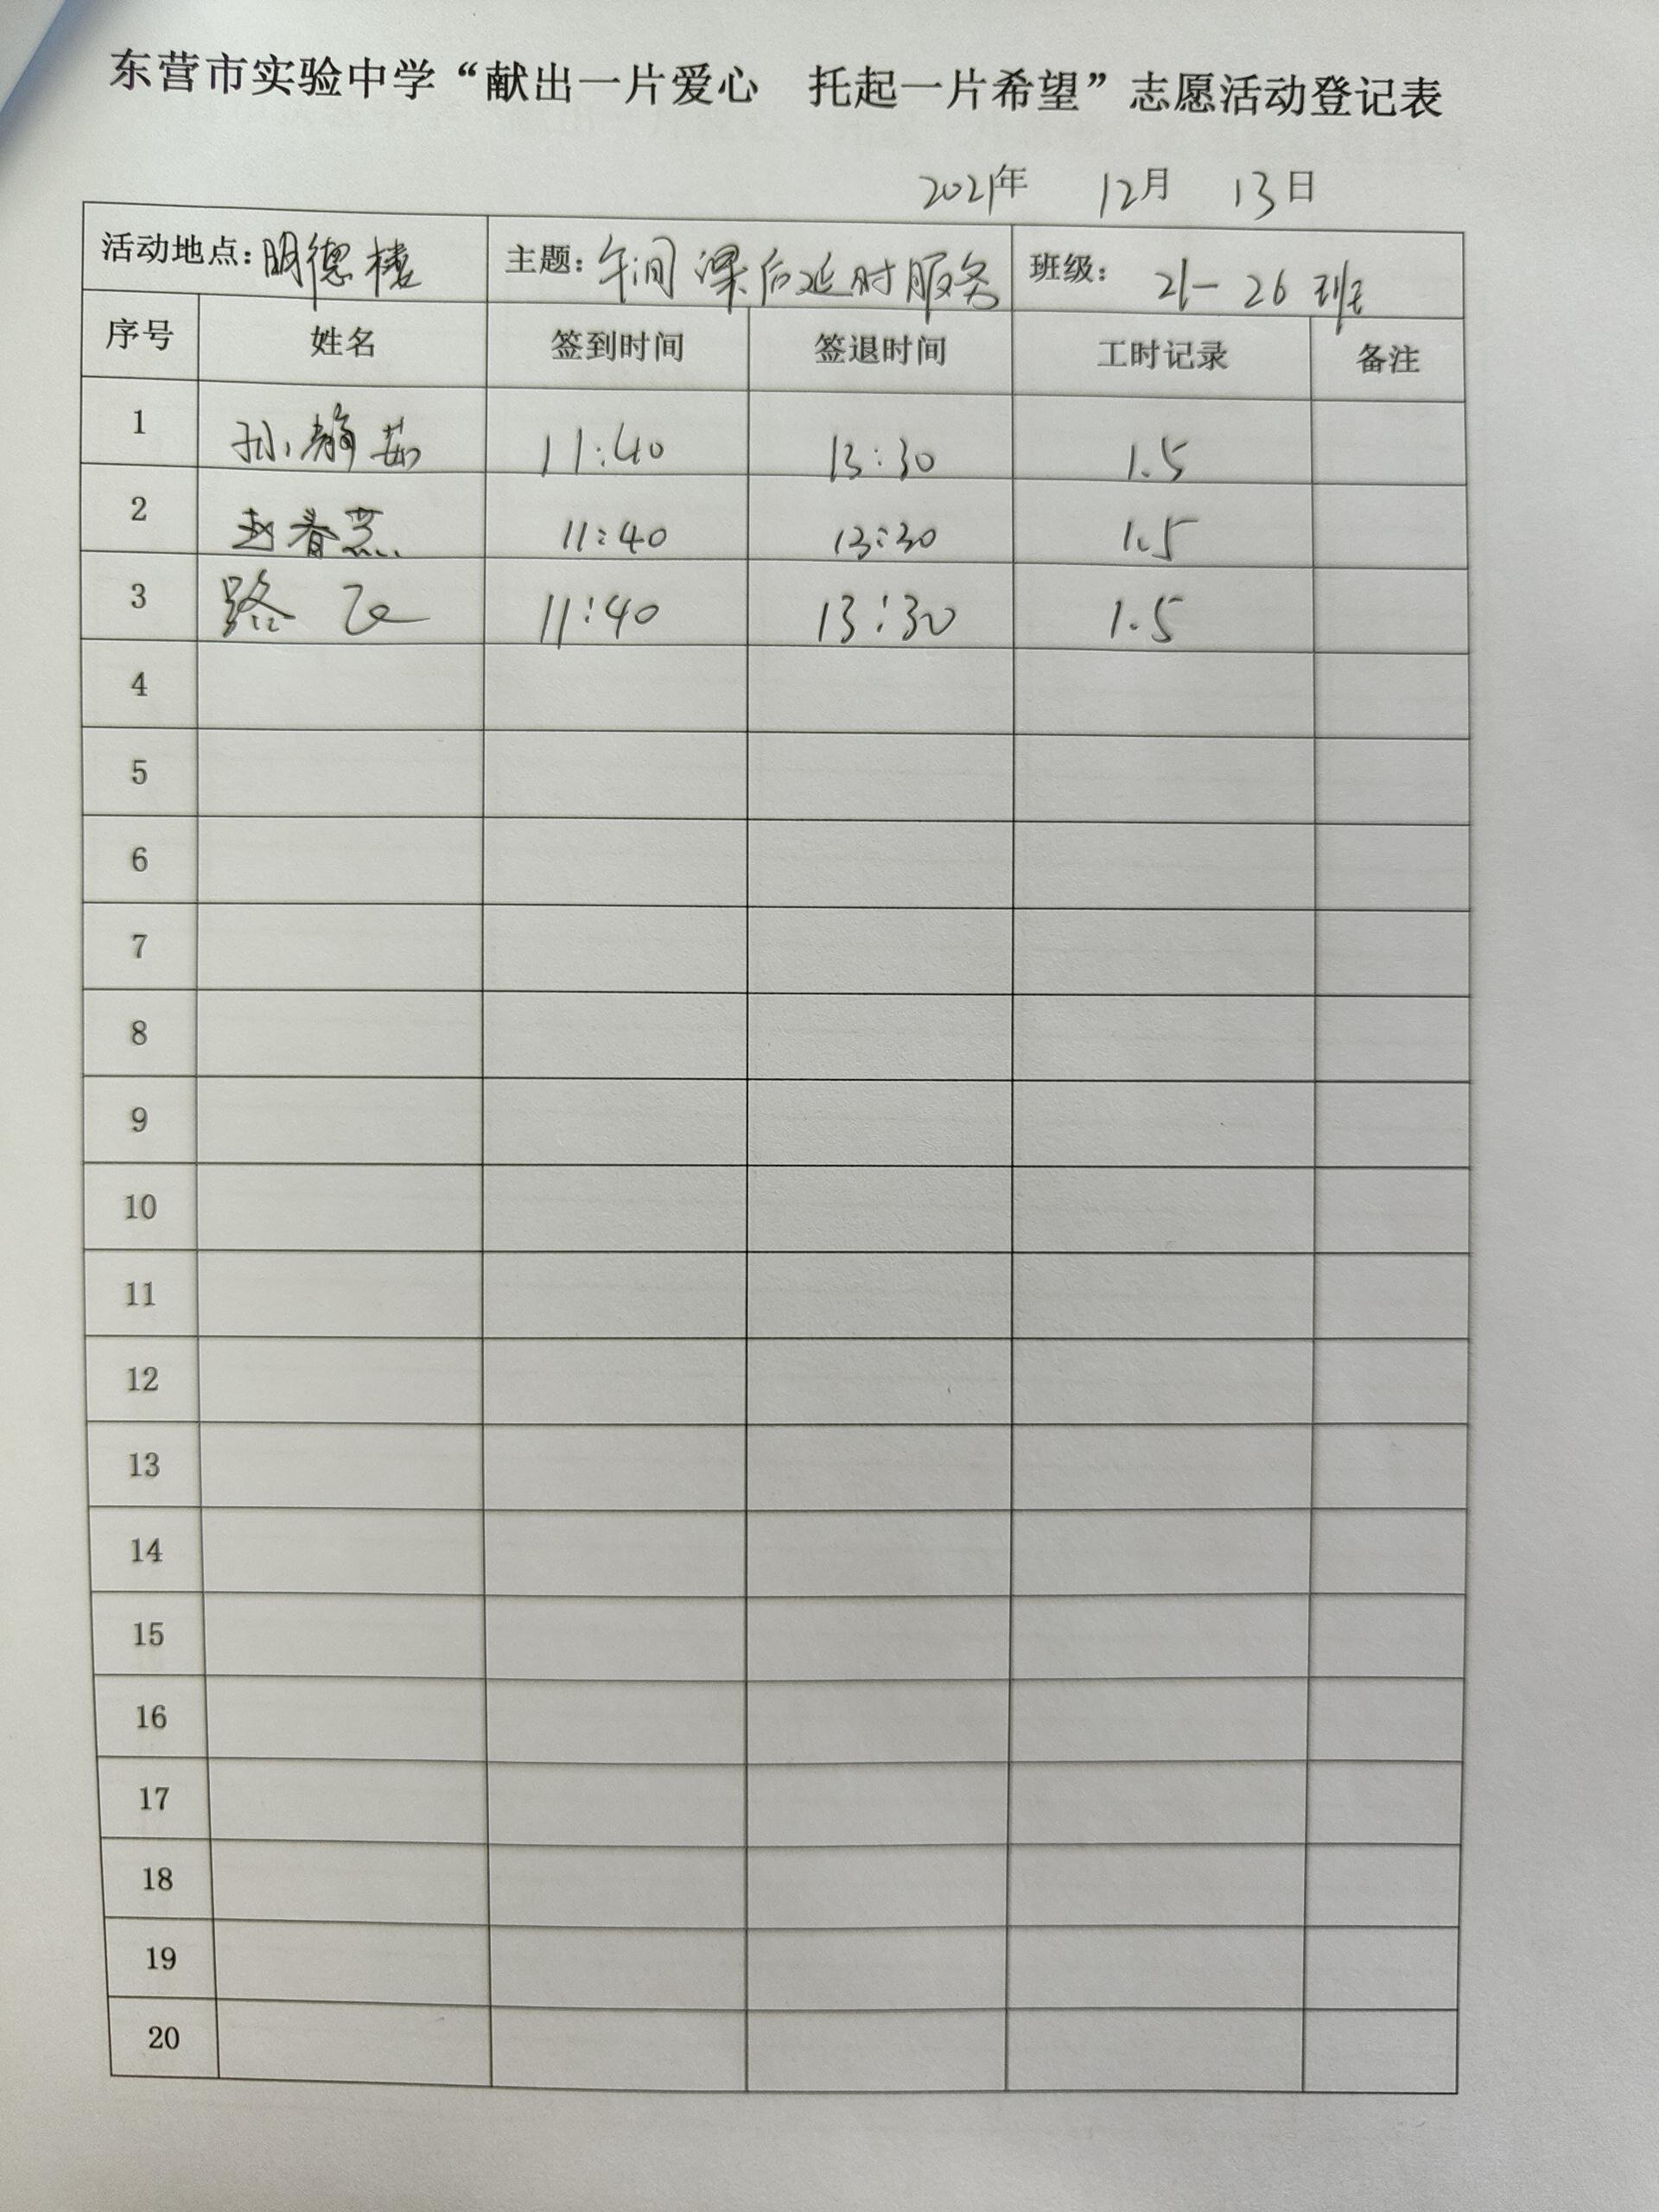 东营市实验中学“献出一片爱心 托起一片希望”志愿活动登记表
2021年 12月 13日
活动地点：明德楼 主题：午间课后延时服务 班级： 21-26班
序号 姓名 签到时间 签退时间 工时记录 备注
1 孙静茹 11:40 13:30 1.5
2 赵春燕 11:40 13:30 1.5
3 路飞 11:40 13:30 1.5
4
5
6
7
8
9
10
11
12
13
14
15
16
17
18
19
20